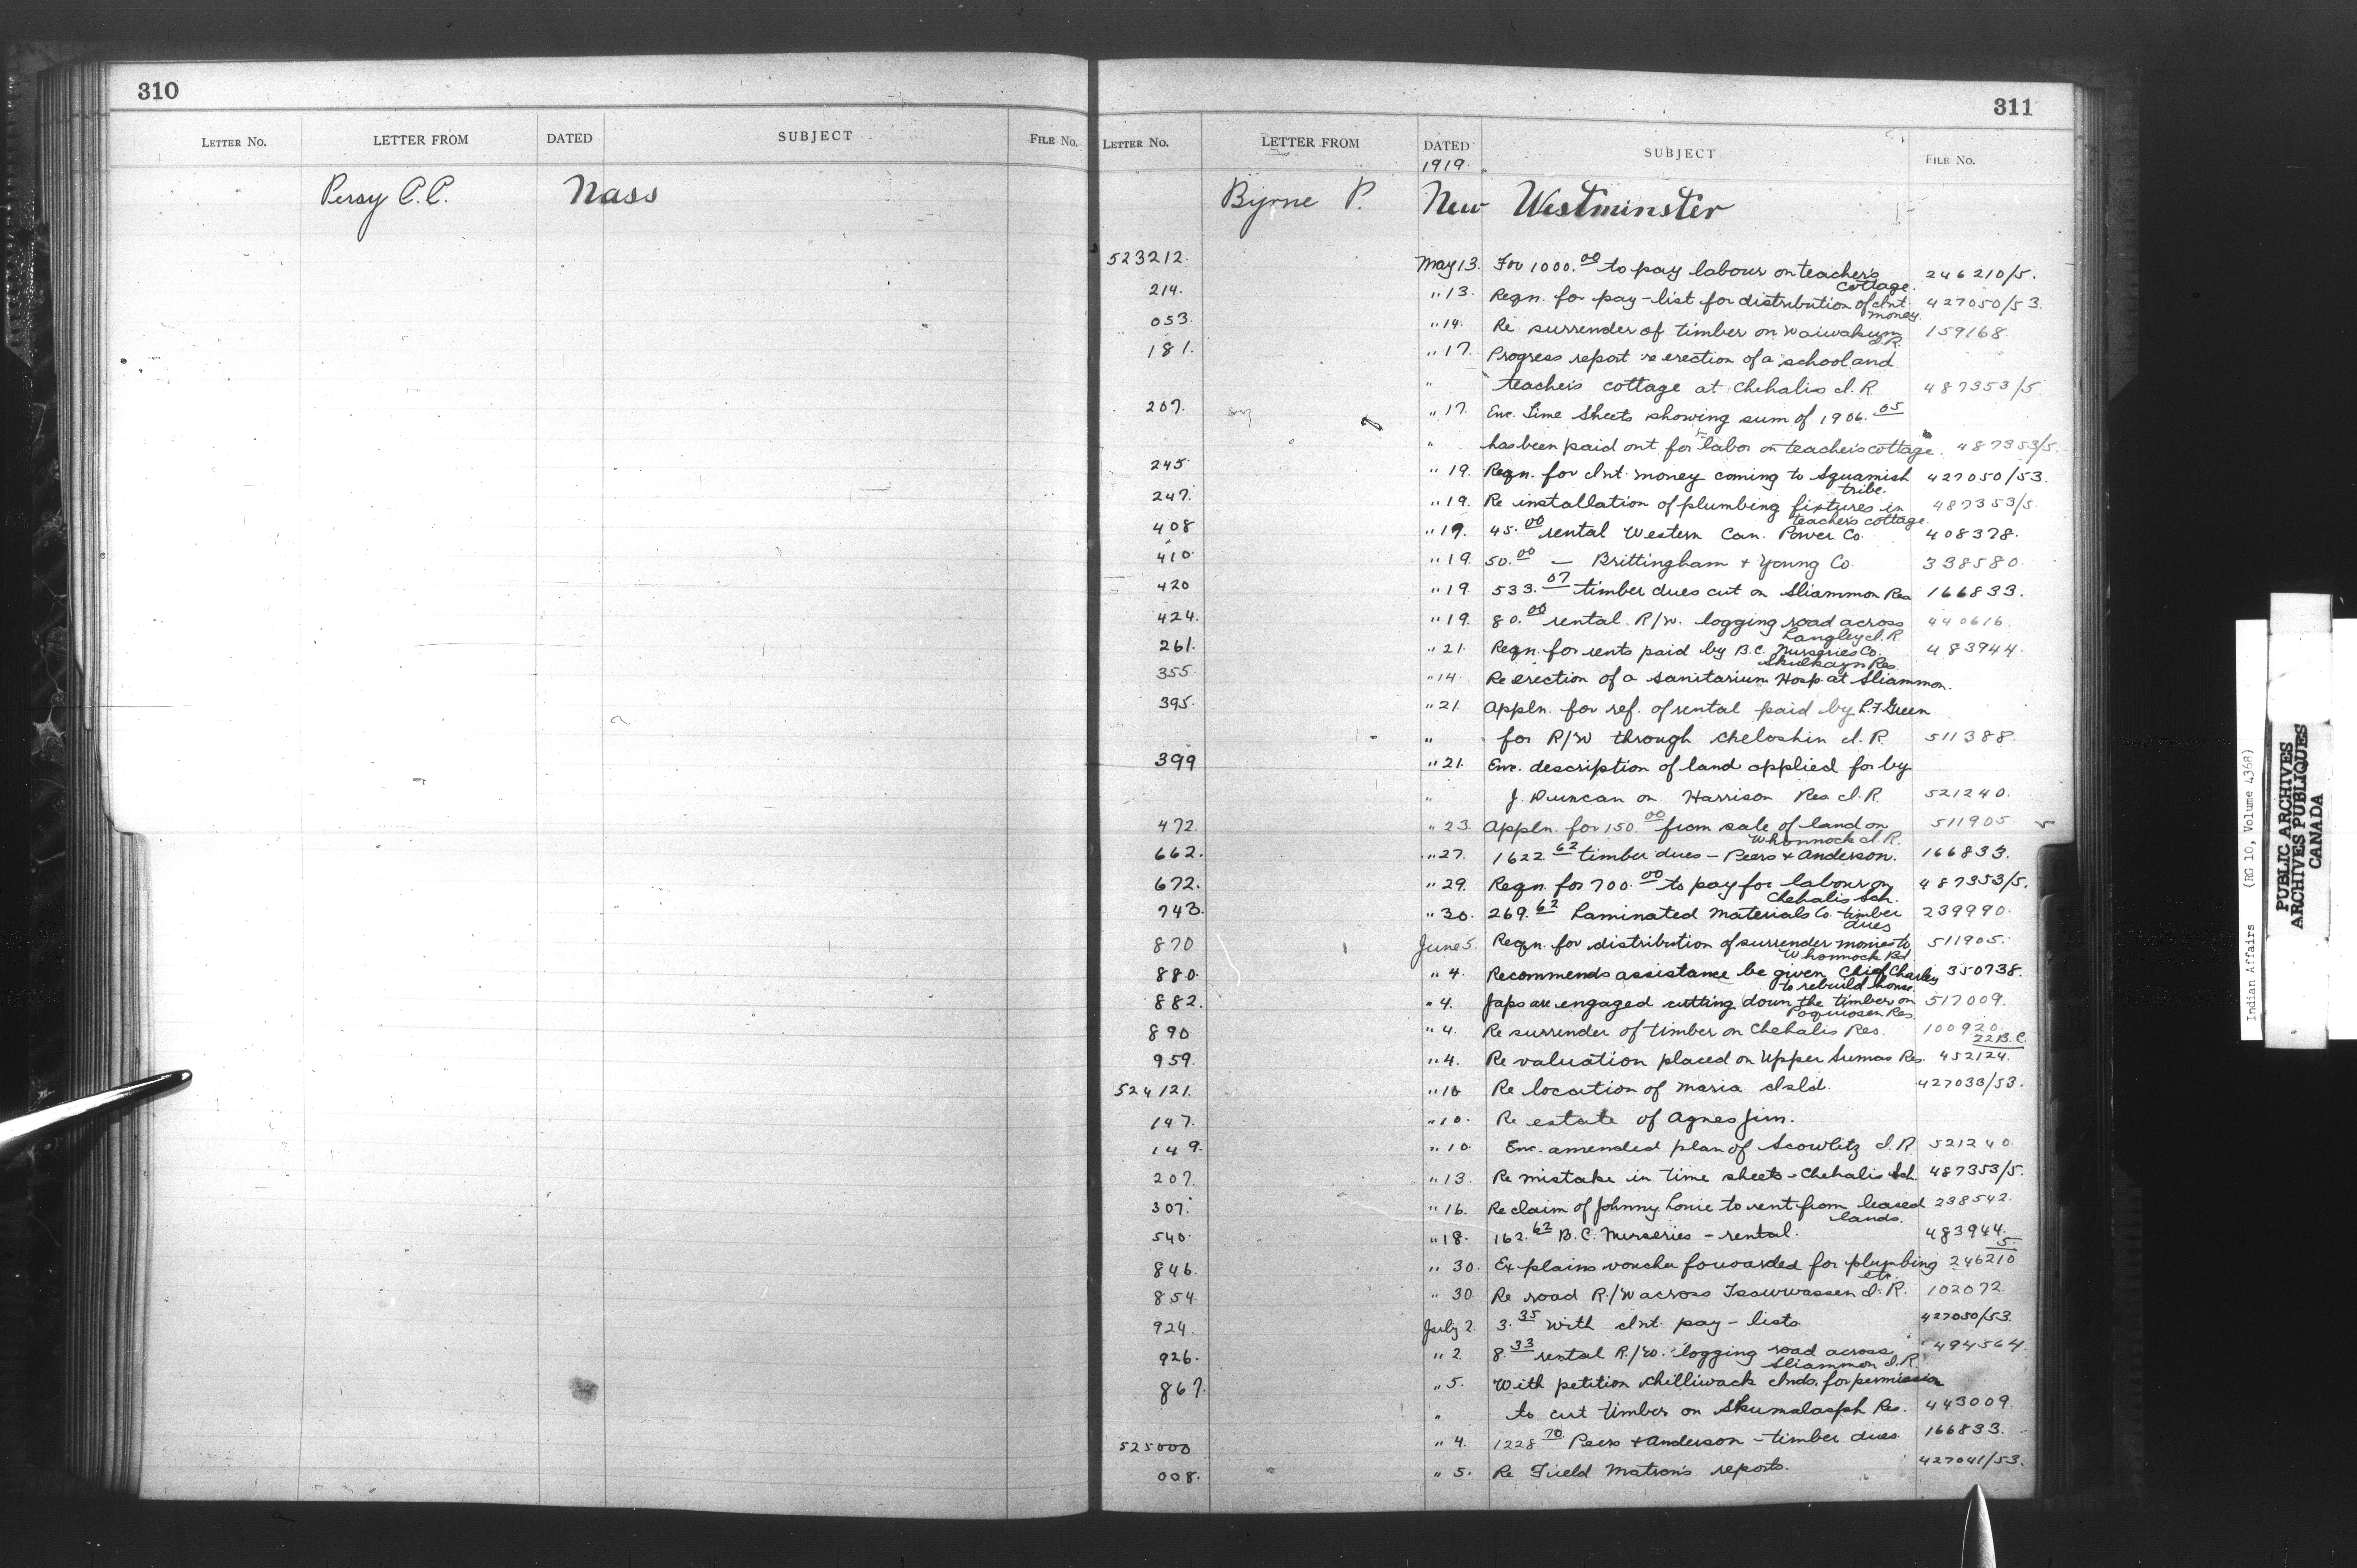 310
LETTER No. LETTER FROM DATED SUBJECT FILE No.
Persy C.C. Nass
311
LETTER No. LETTER FROM DATED SUBJECT FILE No.
1919.
Byrne P. New Westminster
523212. May 13. For 1000.00 to pay labour on teacher's cottage. 246210/5.
214. " 13. Reqn. for pay-list for distribution of Int. money. 427050/53.
053. " 14. Re surrender of timber on Waiwakum I.R. 159168.
181. " 17. Progress report re erection of a school and
" teacher's cottage at Chehalis I.R. 487353/5.
207. " 17. Enc. Time Sheets showing sum of 1906.05
" has been paid out for labor on teacher's cottage. 487353/5.
245. " 19. Reqn. for Int. money coming to Squamish tribe. 427050/53.
247. " 19. Re installation of plumbing fixtures in teacher's cottage. 487353/5.
408 " 19. 45.00 rental Western Can. Power Co. 408378.
410. " 19. 50.00 — Brittingham & Young Co. 338580.
420 " 19. 533.07 timber dues cut on Sliammon Res 166833.
424. " 19. 80.00 rental R/W. logging road across Langley I.R. 440616.
261. " 21. Reqn. for rents paid by B.C. Nurseries Co. Skulkayn Res. 483944.
355. " 14. Re erection of a sanitarium Hosp. at Sliammon.
395. " 21. Appln. for ref. of rental paid by R.F. Green
" for R/W through Cheloshin I.R. 511388.
399 " 21. Enc. description of land applied for by
" J. Duncan on Harrison Res I.R. 521240.
472. " 23. Appln. for 150.00 from sale of land on Whonnock I.R. 511905
662. " 27. 1622.62 timber dues - Peers & Anderson. 166833.
672. " 29. Reqn. for 700.00 to pay for labour on Chehalis Sch. 487353/5.
743. " 30. 269.62 Laminated Materials Co. timber dues 239990.
870 June 5. Reqn. for distribution of surrender monies to Whonnock Bd. 511905.
880. " 4. Recommends assistance be given Chief Charley to rebuild house. 350738.
882. " 4. Japs are engaged cutting down the timber on Poquiosen Res. 517009.
890 " 4. Re surrender of timber on Chehalis Res. 100920. 22 B.C.
959. " 4. Re valuation placed on Upper Sumas Res. 452124.
524121. " 10 Re location of Maria Isld. 427033/53.
147. " 10. Re estate of Agnes Jim.
149. " 10 Enc. amended plan of Scowlitz I.R 521240.
207. " 13. Re mistake in time sheets - Chehalis Sch. 487353/5.
307. " 16. Re claim of Johnny Louie to rent from leased lands. 238542.
540. " 18. 162.62 B.C. Nurseries - rental. 483944.
846. " 30. Explains voucher forwarded for plumbing etc. 246210 5.
854. " 30 Re road R./W across Tsawwassen I.R. 102072.
924. July 2. 3.35 With Int. pay-lists. 427050/53.
926. " 2. 8.33 rental R./W. logging road across Sliammon I.R. 494564.
867. " 5. With petition Chilliwack Inds. for permission
" to cut timber on Skumalasph Res. 443009.
525000 " 4. 1228.70 Peers & Anderson - timber dues. 166833.
008. " 5. Re Field Matron's reports. 427041/53.
Indian Affairs (RG 10, Volume 4368)
PUBLIC ARCHIVES
ARCHIVES PUBLIQUES
CANADA